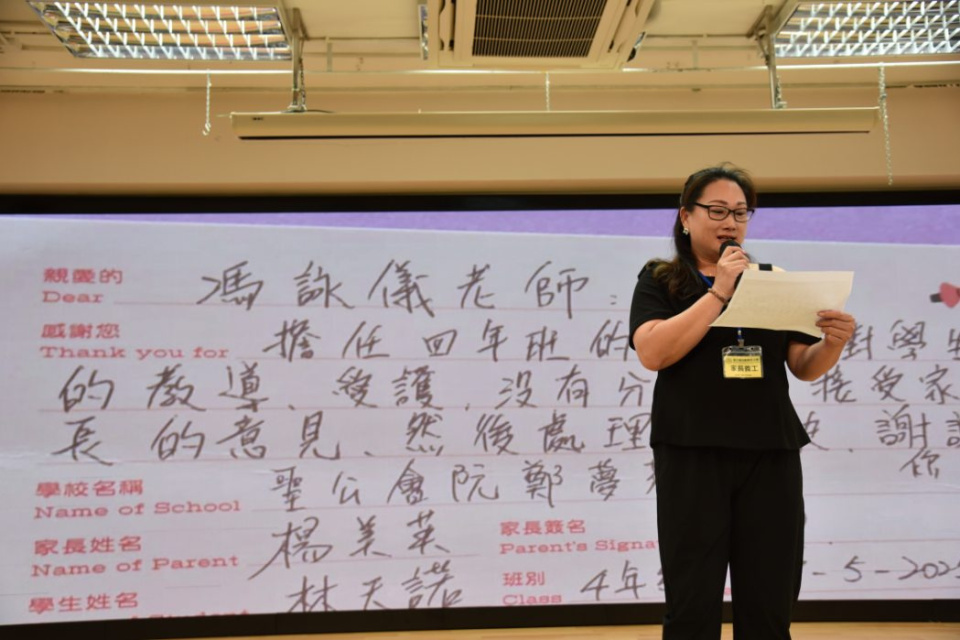 親愛的
Dear 馮詠儀老師：
感謝您
Thank you for 擔任四年班的 對學生
的教導、愛護、沒有分 接受家
長的意見、然後處理 謝謝
你
學校名稱
Name of School 聖公會阮鄭夢
家長姓名
Name of Parent 楊美英
家長簽名
Parent's Signa
學生姓名
林天諾
班別
Class 4年
-5-202
家長義工